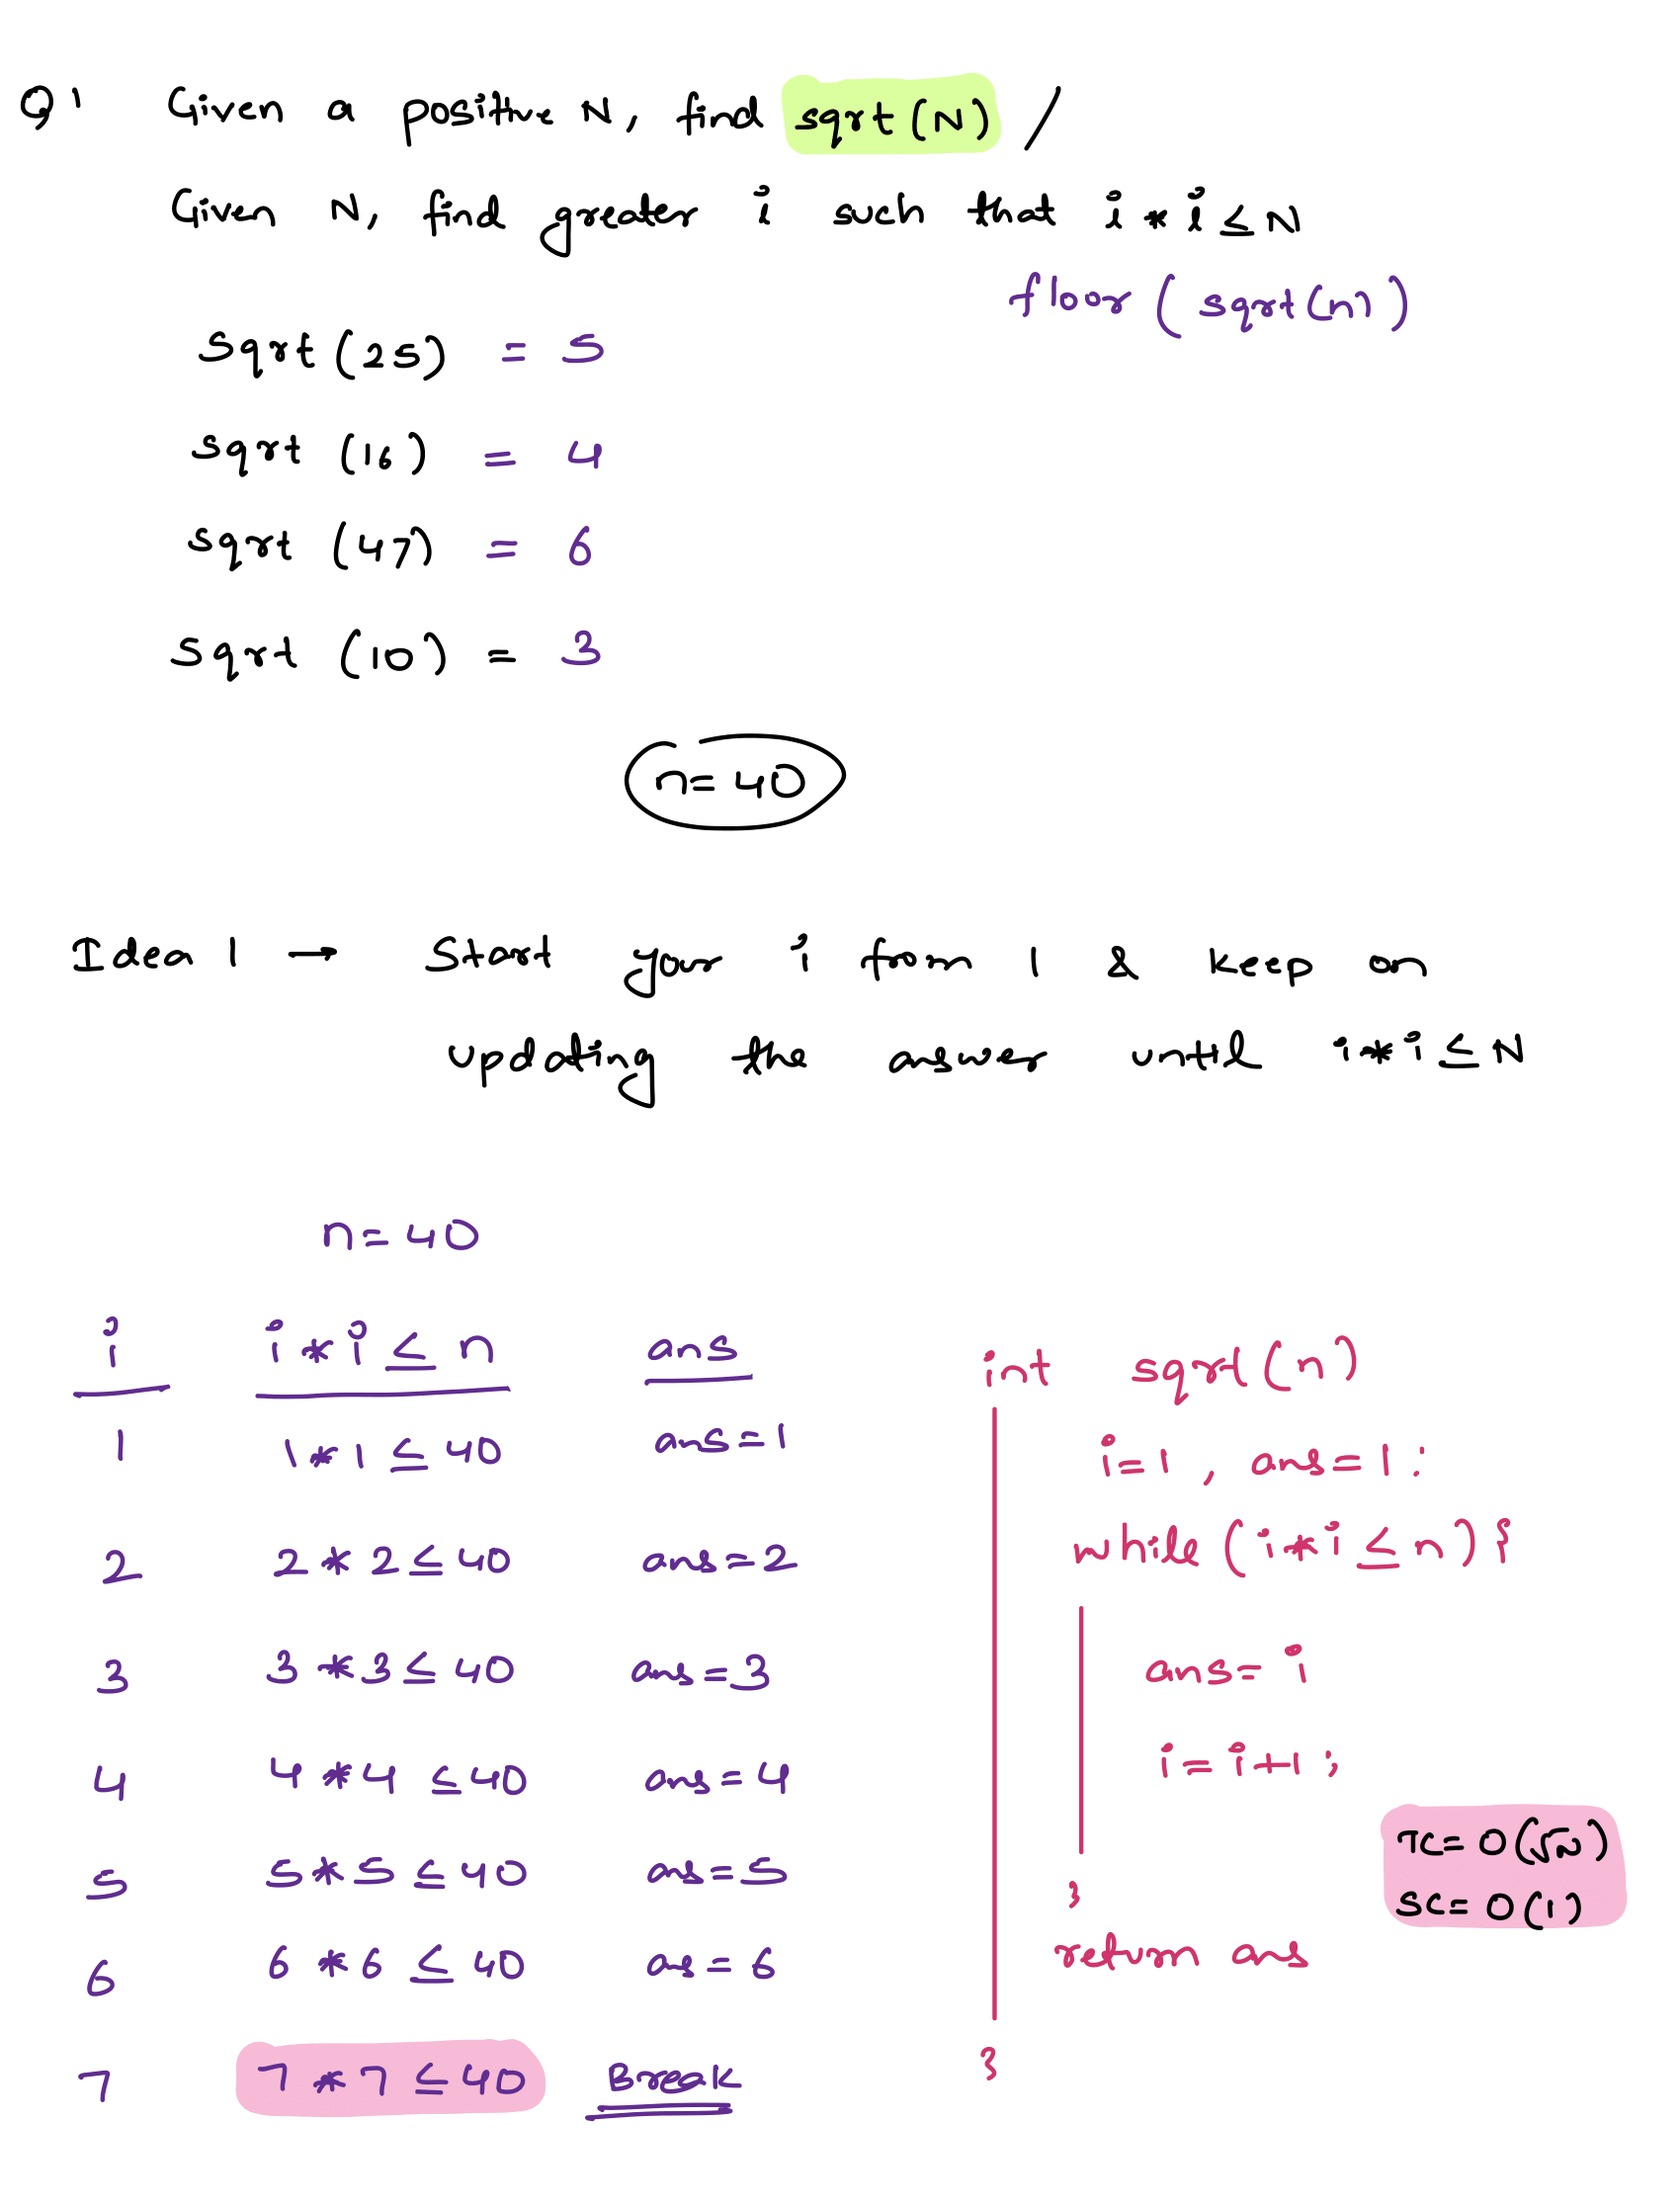 Q1 Given a positive N, find sqrt(N) /
Given N, find greater i such that i * i ≤ N
floor (sqrt(n))
Sqrt (25) = 5
sqrt (16) = 4
sqrt (47) = 6
Sqrt (10) = 3
n= 40
Idea 1 → Start your i from 1 & keep on
updating the answer until i*i ≤ N
n= 40
i i * i ≤ n ans
1 1*1 ≤ 40 ans=1
2 2 * 2 ≤ 40 ans=2
3 3 * 3 ≤ 40 ans=3
4 4 * 4 ≤ 40 ans=4
5 5 * 5 ≤ 40 ans=5
6 6 * 6 ≤ 40 ans=6
7 7 * 7 ≤ 40 Break
int sqrt(n)
i=1 , ans=1 :
while (i*i ≤ n) {
ans= i
i= i+1 ;
}
return ans
}
TC= O(√N)
SC= O(1)